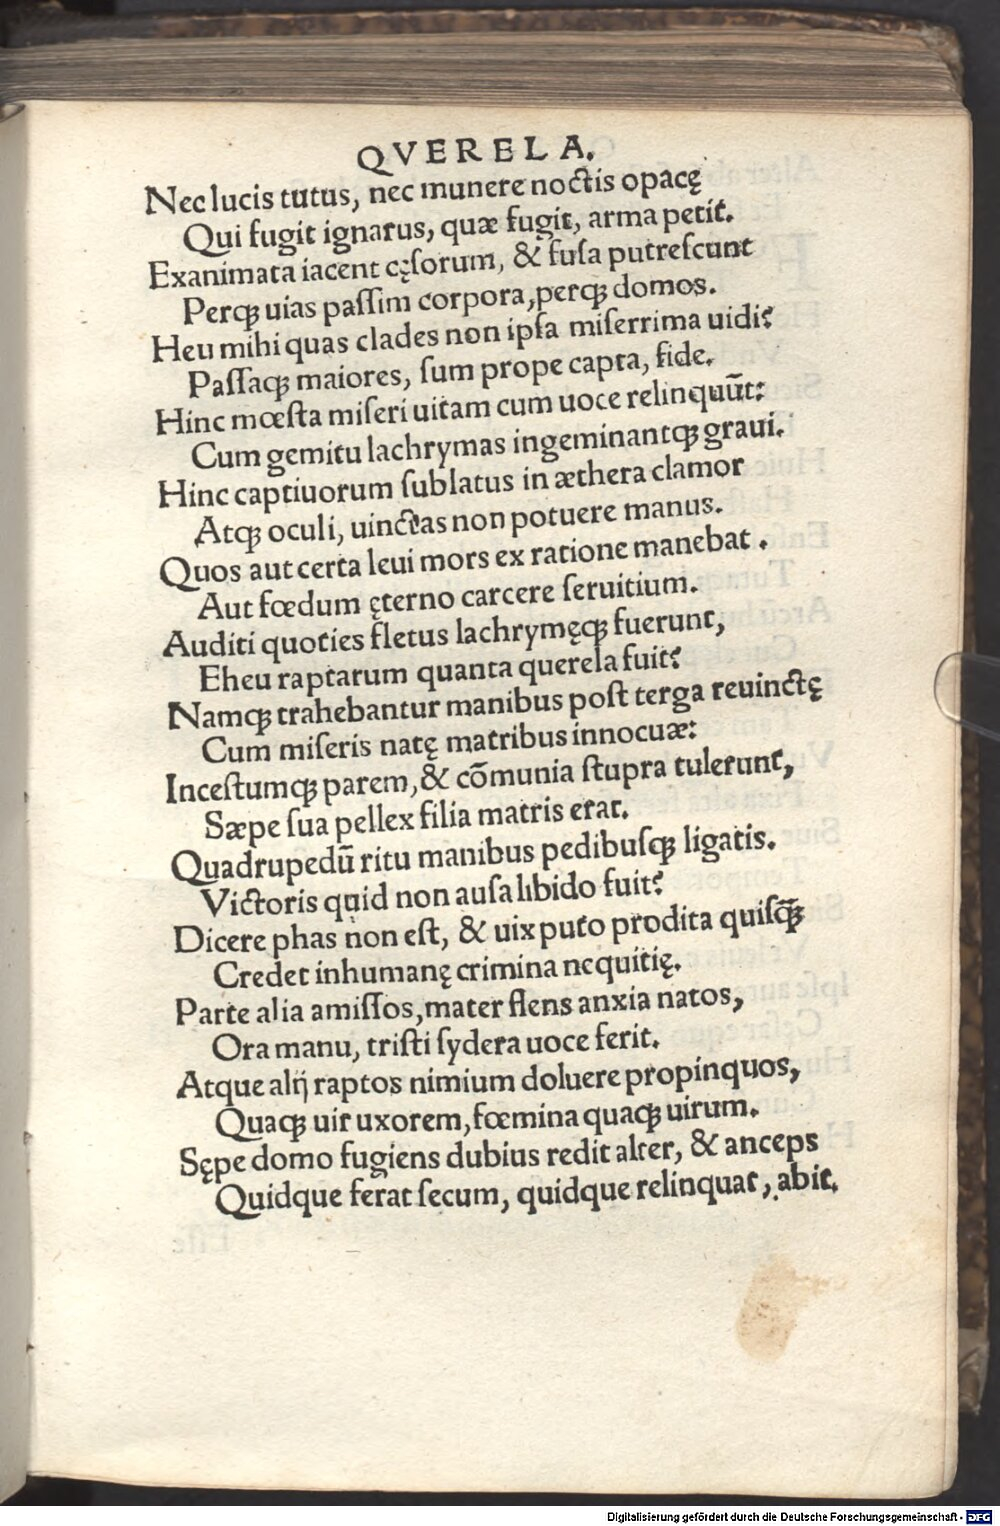 QVERELA.
Nec lucis tutus, nec munere noctis opacę
Qui fugit ignarus, quæ fugit, arma petit.
Exanimata iacent cęſorum, & fuſa putreſcunt
Perqꝫ uias paſſim corpora, perqꝫ domos.
Heu mihi quas clades non ipſa miſerrima uidi?
Paſſaqꝫ maiores, ſum prope capta, fide.
Hinc mœſta miſeri uitam cum uoce relinquūt:
Cum gemitu lachrymas ingeminantqꝫ graui.
Hinc captiuorum ſublatus in æthera clamor
Atqꝫ oculi, uinctas non potuere manus.
Quos aut certa leui mors ex ratione manebat.
Aut fœdum ęterno carcere ſeruitium.
Auditi quoties fletus lachrymęqꝫ fuerunt,
Eheu raptarum quanta querela fuit?
Namqꝫ trahebantur manibus poſt terga reuinctę
Cum miſeris natę matribus innocuæ:
Inceſtumqꝫ parem, & cōmunia ſtupra tulerunt,
Sæpe ſua pellex filia matris erat.
Quadrupedū ritu manibus pedibuſqꝫ ligatis.
Victoris quid non auſa libido fuit?
Dicere phas non eſt, & uix puto prodita quiſqꝫ̄
Credet inhumanę crimina nequitię.
Parte alia amiſſos, mater flens anxia natos,
Ora manu, triſti ſydera uoce ferit.
Atque alij raptos nimium doluere propinquos,
Quaqꝫ uir uxorem, fœmina quaqꝫ uirum.
Sępe domo fugiens dubius redit alter, & anceps
Quidque ferat ſecum, quidque relinquat, abit.
Digitalisierung gefördert durch die Deutsche Forschungsgemeinschaft - DFG